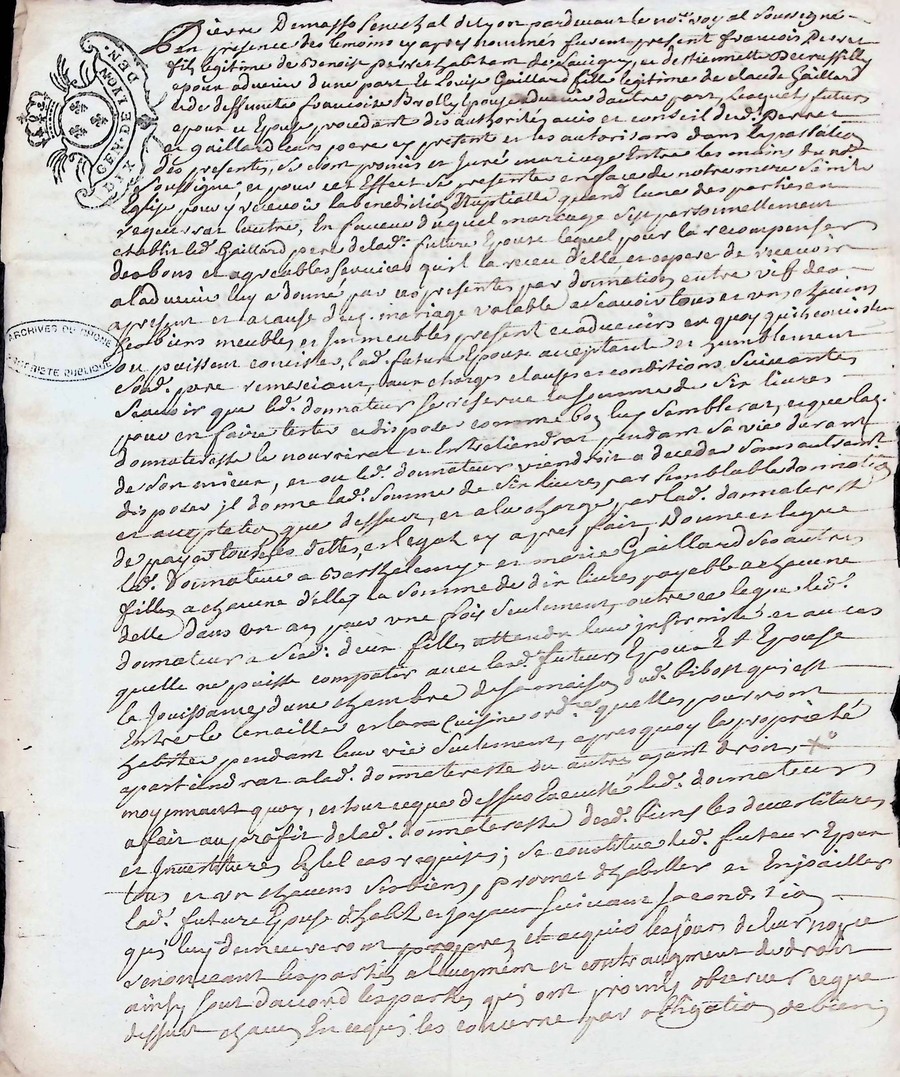 GEN. DE LYON. DEN.
DIX
ARCHIVES DU RHONE
PROPRIETE PUBLIQUE
Pierre Demasso Senechal de Lyon pardevant le nore royal soussigné
en presence des temoins cy apres nommés furent present francois Perret
fils legitime de Benoist perret habitant de Savigny, et de stiennette
epoux advenir d'une part, Et Louise Gaillard fille legitime de claude Gaillard
et de deffunte francoise Brolly Epouse advenir d'autre part, Lesquels futurs
epoux et Epouse procedant des authorités avis et conseil dud. Perret
et gaillard leurs pere cy present et les autorisans dans la passation
des presentes, se sont promis et Juré mariage Entre les mains du nore
soussigné, et pour cet Effect se presenter en face de notre mere Sainte
Eglise pour y recevoir la benediction Nuptialle quand l'une des parties en
requerrat l'autre, En faveur duquel mariage s'est personnellement
etably led. Gaillard pere de lad. future Epouse lequel pour la recompenser
des bons et agreables services qu'il la receu d'elle et espere de recevoir
a ladvenir luy a donné par ces presentes par donnation entre vif des
a present et a cause dud. mariage valable a scavoir tous et uns chacuns
ses biens meubles et Immeubles present et advenirs en quoy qu'ils consistent
ou puissent consister, lad. future Epouse acceptant et humblement
sond. pere remerciant, aux charges clauses et conditions suivantes
scavoir que led. donnateur se reserve la somme de six livres
pour en faire tester et disposer comme bon luy semblerat, et que lad.
donnateresse le nourrirat et Entretiendrat pendant sa vie durant
de son mieux, et ou led. donnateur viendroit a deceder sans autrement
disposer il donne lad. somme de six livres par semblable donnation
et acceptation que dessus, et a la charge par lad. donnateresse
de payer toutes les dettes, et legats cy apres fait, Donne et legue
led. Donnateur a Barthelemye et marie Gaillard ses autres
filles a chacune d'elles la somme de dix livres payable a chacune
delle dans un an pour une fois seulement, outre ce legue led.
donnateur a sesd. deux filles attendu leur infirmité et au cas
quelle ne puisse compatir avec lesd. futurs Epoux Et Epouse
la Jouissance d'une chambre de sa maison dud. Ribost qui est
Entre le tenailler et la cuisine ordre quelles pourront
habiter pendant leur vie seulement, apres quoy la proprieté
apartiendrat a lad. donnateresse ou autres ayant droit,
moyennant quoy, et tout ce que dessus Executé led. donnateur
a fait au profit de lad. donnateresse desd. biens les devestitures
et Investitures Et tel cas requises; se constitue led. futeur Epoux
tous et un chacuns ses biens, promet d'habiller et Enjoailler
lad. future Epouse d'habit et joyaux suivant sa condition
qui luy demeureront propres et acquis les jours de leur nopce
renonceant les parties a laugment et contraugment de droit
ainsy sont d'accord les parties qui ont promis observer ce que
dessus chacun En ce qui les concerne par obligation de biens